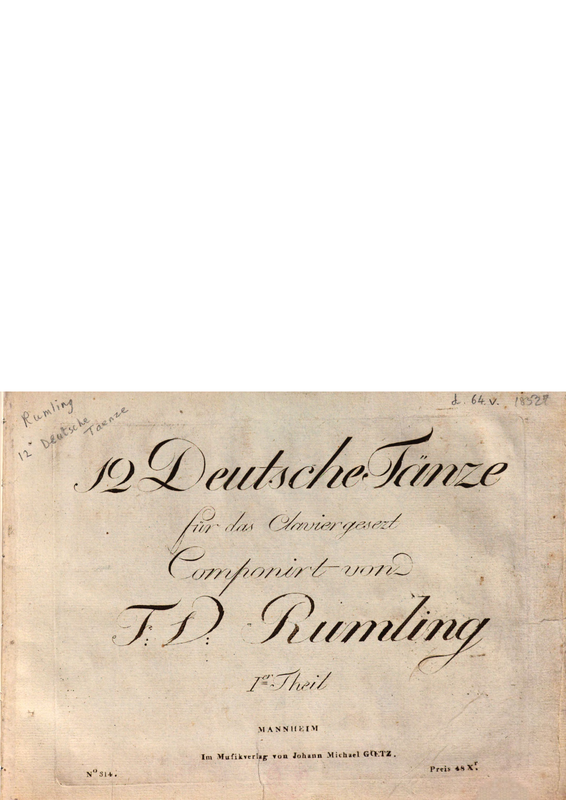 Rumling
12 Deutsche
Taenze
d. 64. v. 18528
12 Deutsche Tänze
für das Clavier gesezt
Componirt von
F: D: Rumling
1er Theil
MANNHEIM
Im Musikverlag von Johann Michael GŒTZ.
No 314.
Preis 48 Xr.